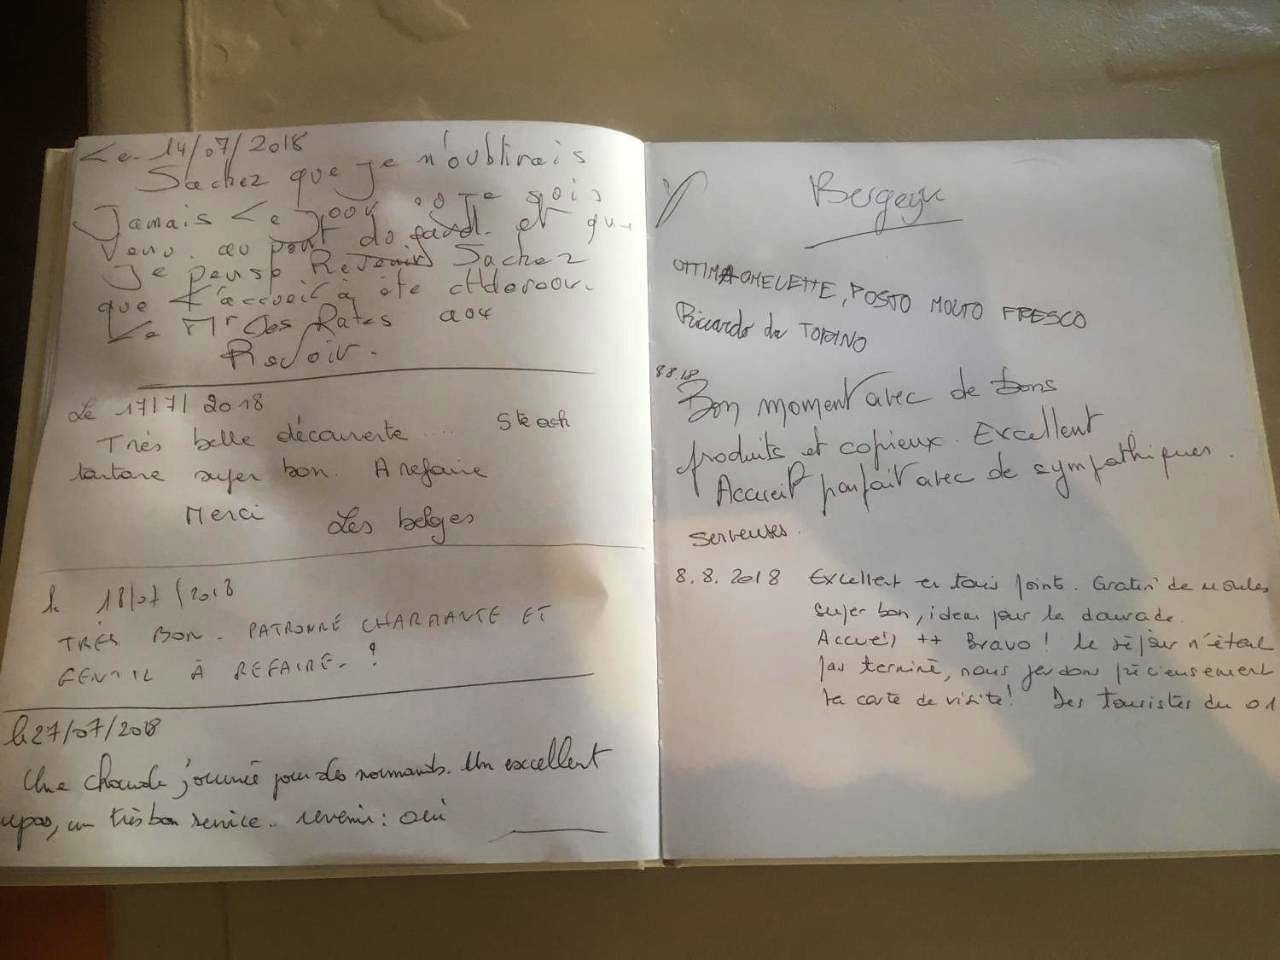 Le 14/07/2018
Sachez que je n'oublirais
Jamais Le Jour où Je sois
venu au pont do gard. et que
Je pense Revenir Sachez
que L'accueil à été
Le Mr des Rates aor
Revoir.
Le 17/7/2018
Très belle découverte .... Steack
tartare super bon. A refaire
Merci Les belges
le 18/07/2018
TRÈS BON. PATRONNE CHARMANTE ET
GENTIL À REFAIRE.
le 27/07/2018
Une chaude journée pour des normands. Un excellent
repas, un très bon service.. revenir : oui
OTTIMA OMELETTE, POSTO MOLTO FRESCO
Riccardo da TORINO
8.8.18
Bon moment avec de bons
produits et copieux. Excellent
Accueil parfait avec de sympathiques
serveuses.
8.8.2018 Excellent en tous point. Gratin de moules
super bon, idem pour la daurade.
Accueil ++ Bravo ! Le séjour n'étant
pas terminé, nous gardons précieusement
ta carte de visite ! Des touristes du 01